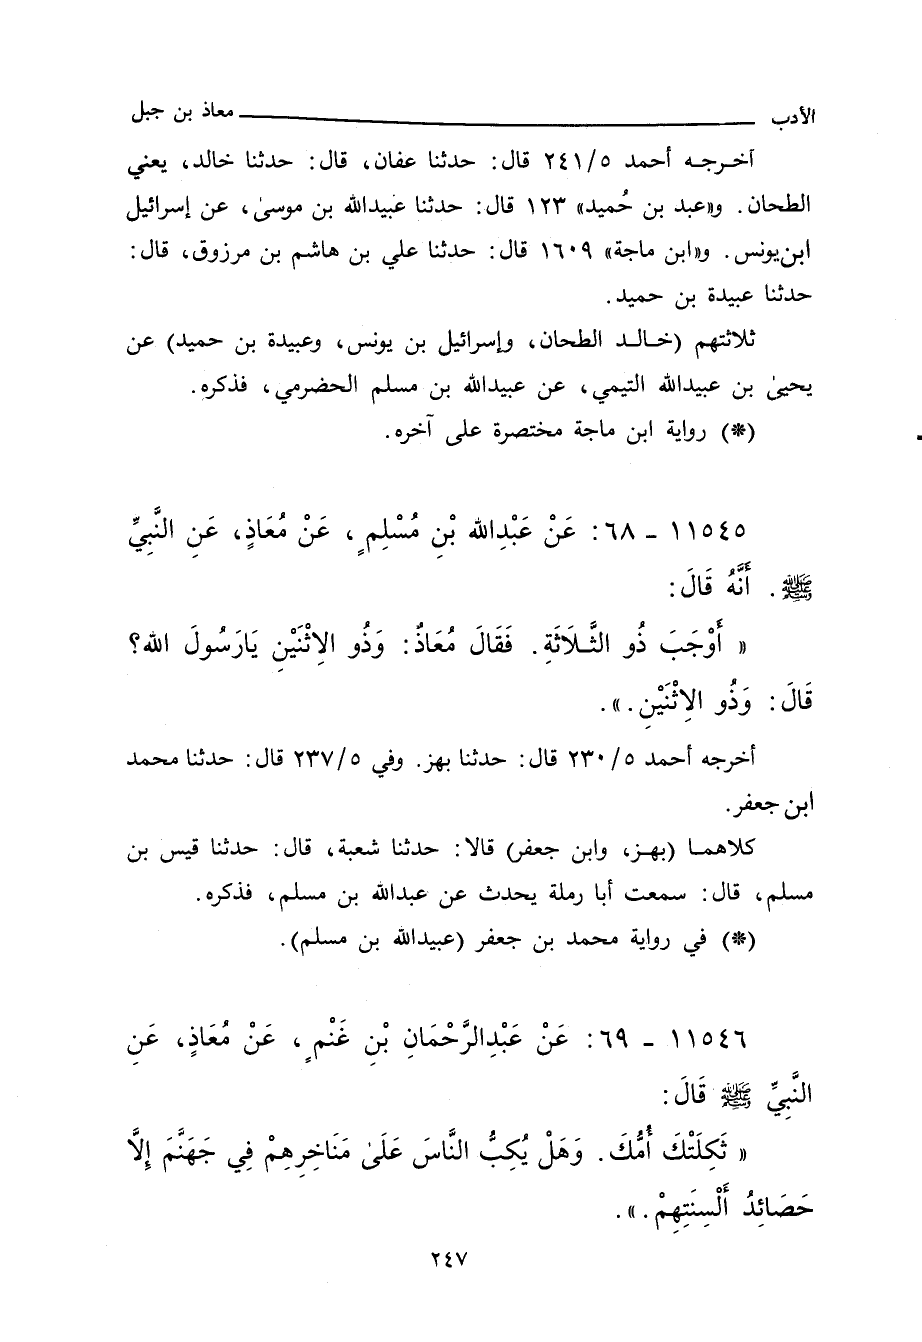 الأدب معاذ بن جبل
أخرجه أحمد ٥/٢٤١ قال: حدثنا عفان، قال: حدثنا خالد، يعني
الطحان. و«عبد بن حُميد» ١٢٣ قال: حدثنا عبيدالله بن موسىٰ، عن إسرائيل
ابن يونس. و«ابن ماجة» ١٦٠٩ قال: حدثنا علي بن هاشم بن مرزوق، قال:
حدثنا عبيدة بن حميد.
ثلاثتهم (خالد الطحان، وإسرائيل بن يونس، وعبيدة بن حميد) عن
يحيىٰ بن عبيدالله التيمي، عن عبيدالله بن مسلم الحضرمي، فذكره.
(*) رواية ابن ماجة مختصرة على آخره.
١١٥٤٥ - ٦٨: عَنْ عَبْدِالله بْنِ مُسْلِمٍ، عَنْ مُعَاذٍ، عَنِ النَّبِيِّ
ﷺ. أَنَّهُ قَالَ:
« أَوْجَبَ ذُو الثَّلَاثَةِ. فَقَالَ مُعَاذٌ: وَذُو الِاثْنَيْنِ يَارَسُولَ الله؟
قَالَ: وَذُو الِاثْنَيْنِ.».
أخرجه أحمد ٥/٢٣٠ قال: حدثنا بهز. وفي ٥/٢٣٧ قال: حدثنا محمد
ابن جعفر.
كلاهما (بهز، وابن جعفر) قالا: حدثنا شعبة، قال: حدثنا قيس بن
مسلم، قال: سمعت أبا رملة يحدث عن عبدالله بن مسلم، فذكره.
(*) في رواية محمد بن جعفر (عبيدالله بن مسلم).
١١٥٤٦ - ٦٩: عَنْ عَبْدِالرَّحْمَانِ بْنِ غَنْمٍ، عَنْ مُعَاذٍ، عَنِ
النَّبِيِّ ﷺ قَالَ:
« ثَكِلَتْكَ أُمُّكَ. وَهَلْ يُكِبُّ النَّاسَ عَلَىٰ مَنَاخِرِهِمْ فِي جَهَنَّمَ إِلَّا
حَصَائِدُ أَلْسِنَتِهِمْ.».
٢٤٧